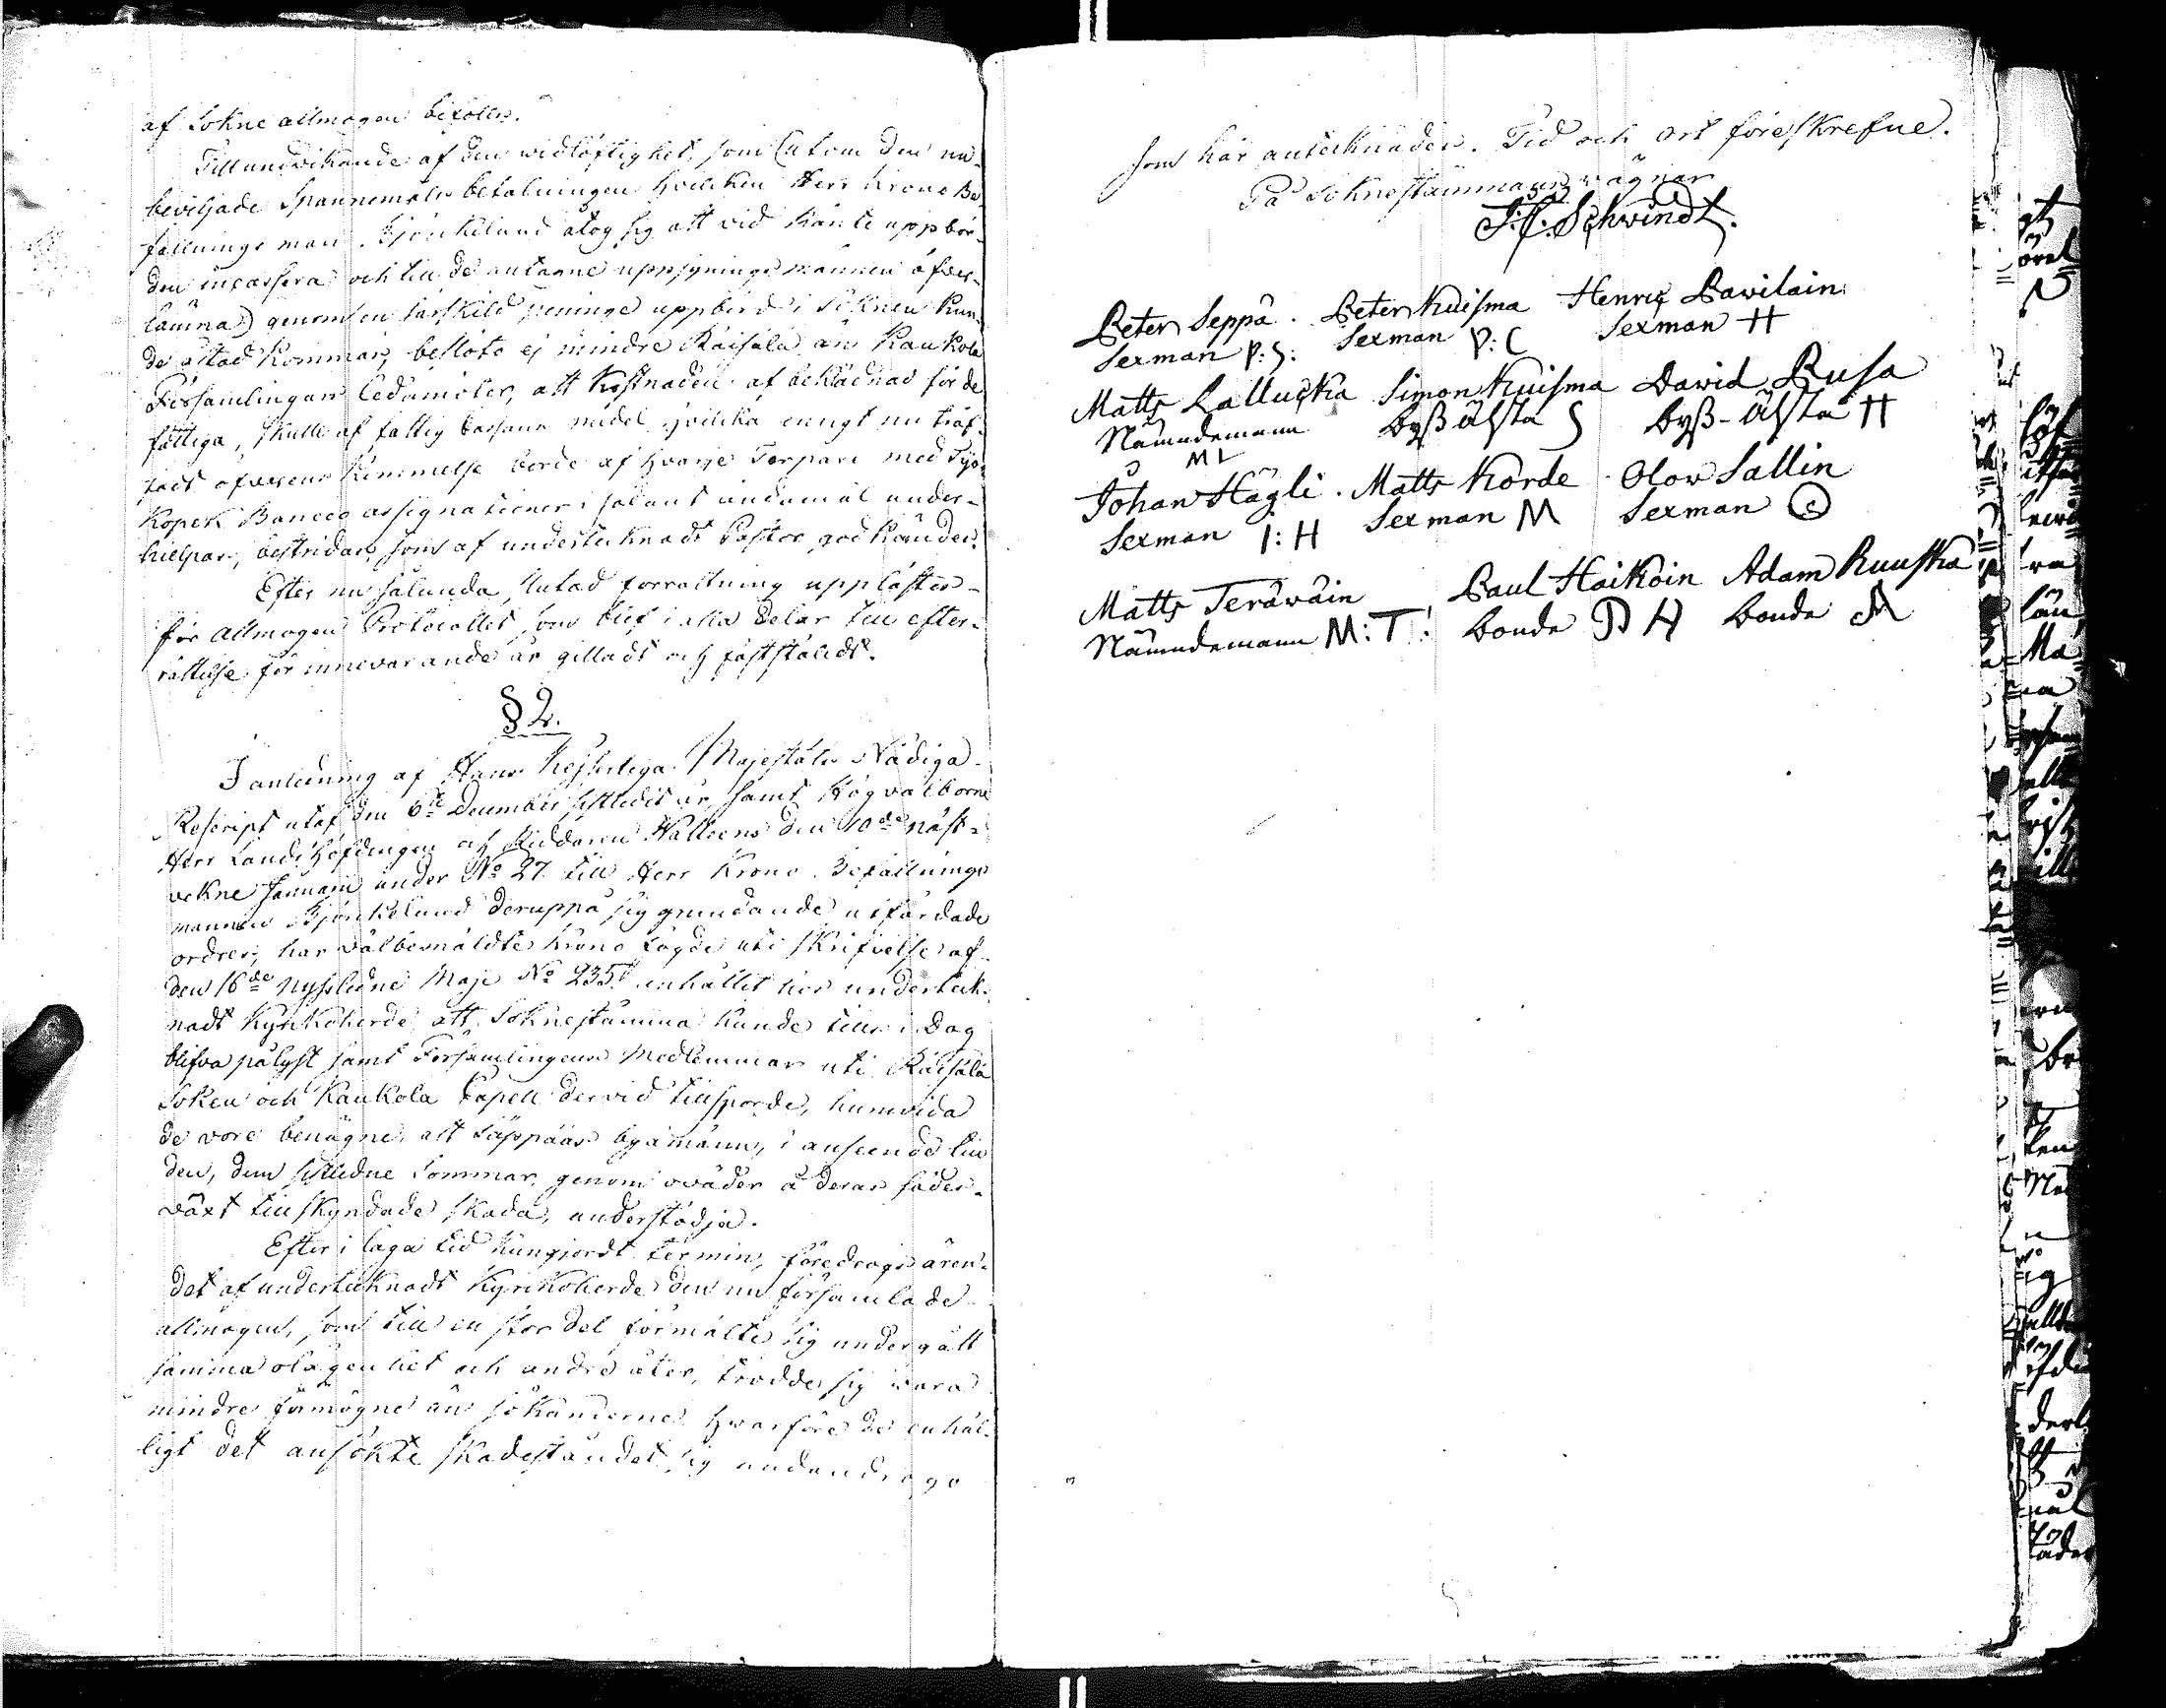 af Sokne allmogen
Till undvikande af den widlöftighet, som (utom den nu
beviljade Spannemåls betalningen hvilken Herr Krono Be-
fallnings man Björkelund åtog sig att vid Ränte uppbör-
den incassera och till de antagne uppsynings männen öfver-
lämna) genom en särskild pennings uppbörd i Soknen kun-
de åstad kommas, beslöto ej mindre Räisälä än Kaukola
Församlingars Ledamöter, att Kostnaden af beklädnad för de
fattiga, skulle af fattig Cassans medel, hvilka enligt nu träf-
fadt öfverens kommelse borde af hvarje Torpare med Tjo-
Kopek Banco assignationer i sådant ändamål under-
hielpas, bestridas, som af undertecknadt Pastor godkändes.
Efter nu sålunda slutad förrättning upplästes
för allmogen Protocollet, som blef i alla delar till efter-
rättelse för innevarande år gilladt och fastställdt.
§ 2.
I anledning af Hans Kejserliga Majestäts Nådiga
Rescript utaf den 6te December sistledit år, samt Högvälborne
Herr Lands Höfdingen och Riddaren Walleens den 10de näst-
vekne Januarii under No 27 till Herr Krono Befallnings
mannen Björkelund deruppå sig grundande utfärdade
ordres, har välbemäldte Krono Fogde uti skrifvelse af
den 16de nyssledne Maji No 235 anhållit hos underteck-
nadt Kyrkoherde att Soknestämma kunde till i Dag
blifva pålyst samt Församlingens Medlemmar uti Räisälä
Soken och Kaukola Capell dervid tillsporde, huruvida
de vore benägne, att Säppääs byamänn, i anseende till
den, dem sistledne Sommar, genom oväder å deras sädes-
växt tillskyndade skada, understödja.
Efter i laga tid kungjordt termin, föredrogs ären-
det af undertecknadt Kyrkoherde den nu församlade
allmogen, som till en stor del förmälte sig undergått
samma olägenhet och andre åter, trodde sig vara
mindre förmögne än sökanderne hvarföre de enhäl-
ligt det ansökte skadeståndet sig undandrogo
som här antecknades. Tid och ort föreskrefne.
På Soknestämmans vägnar
Schwindt.
Peter Seppä. Peter Kuisma Henric Pavilain
Sexman P: S: Sexman P: C Sexman H
Matts Lallucka Simon Kuisma David Rusa
Nämndemann Byß Älsta S Byß-Älsta H
ML
Johan Hägli. Matts Korde Olow Sallin
Sexman I: H Sexman M Sexman
Matts Teräwäin Paul Haikoin Adam Ruuska
Nämndemann M: T: Bonde P H Bonde A